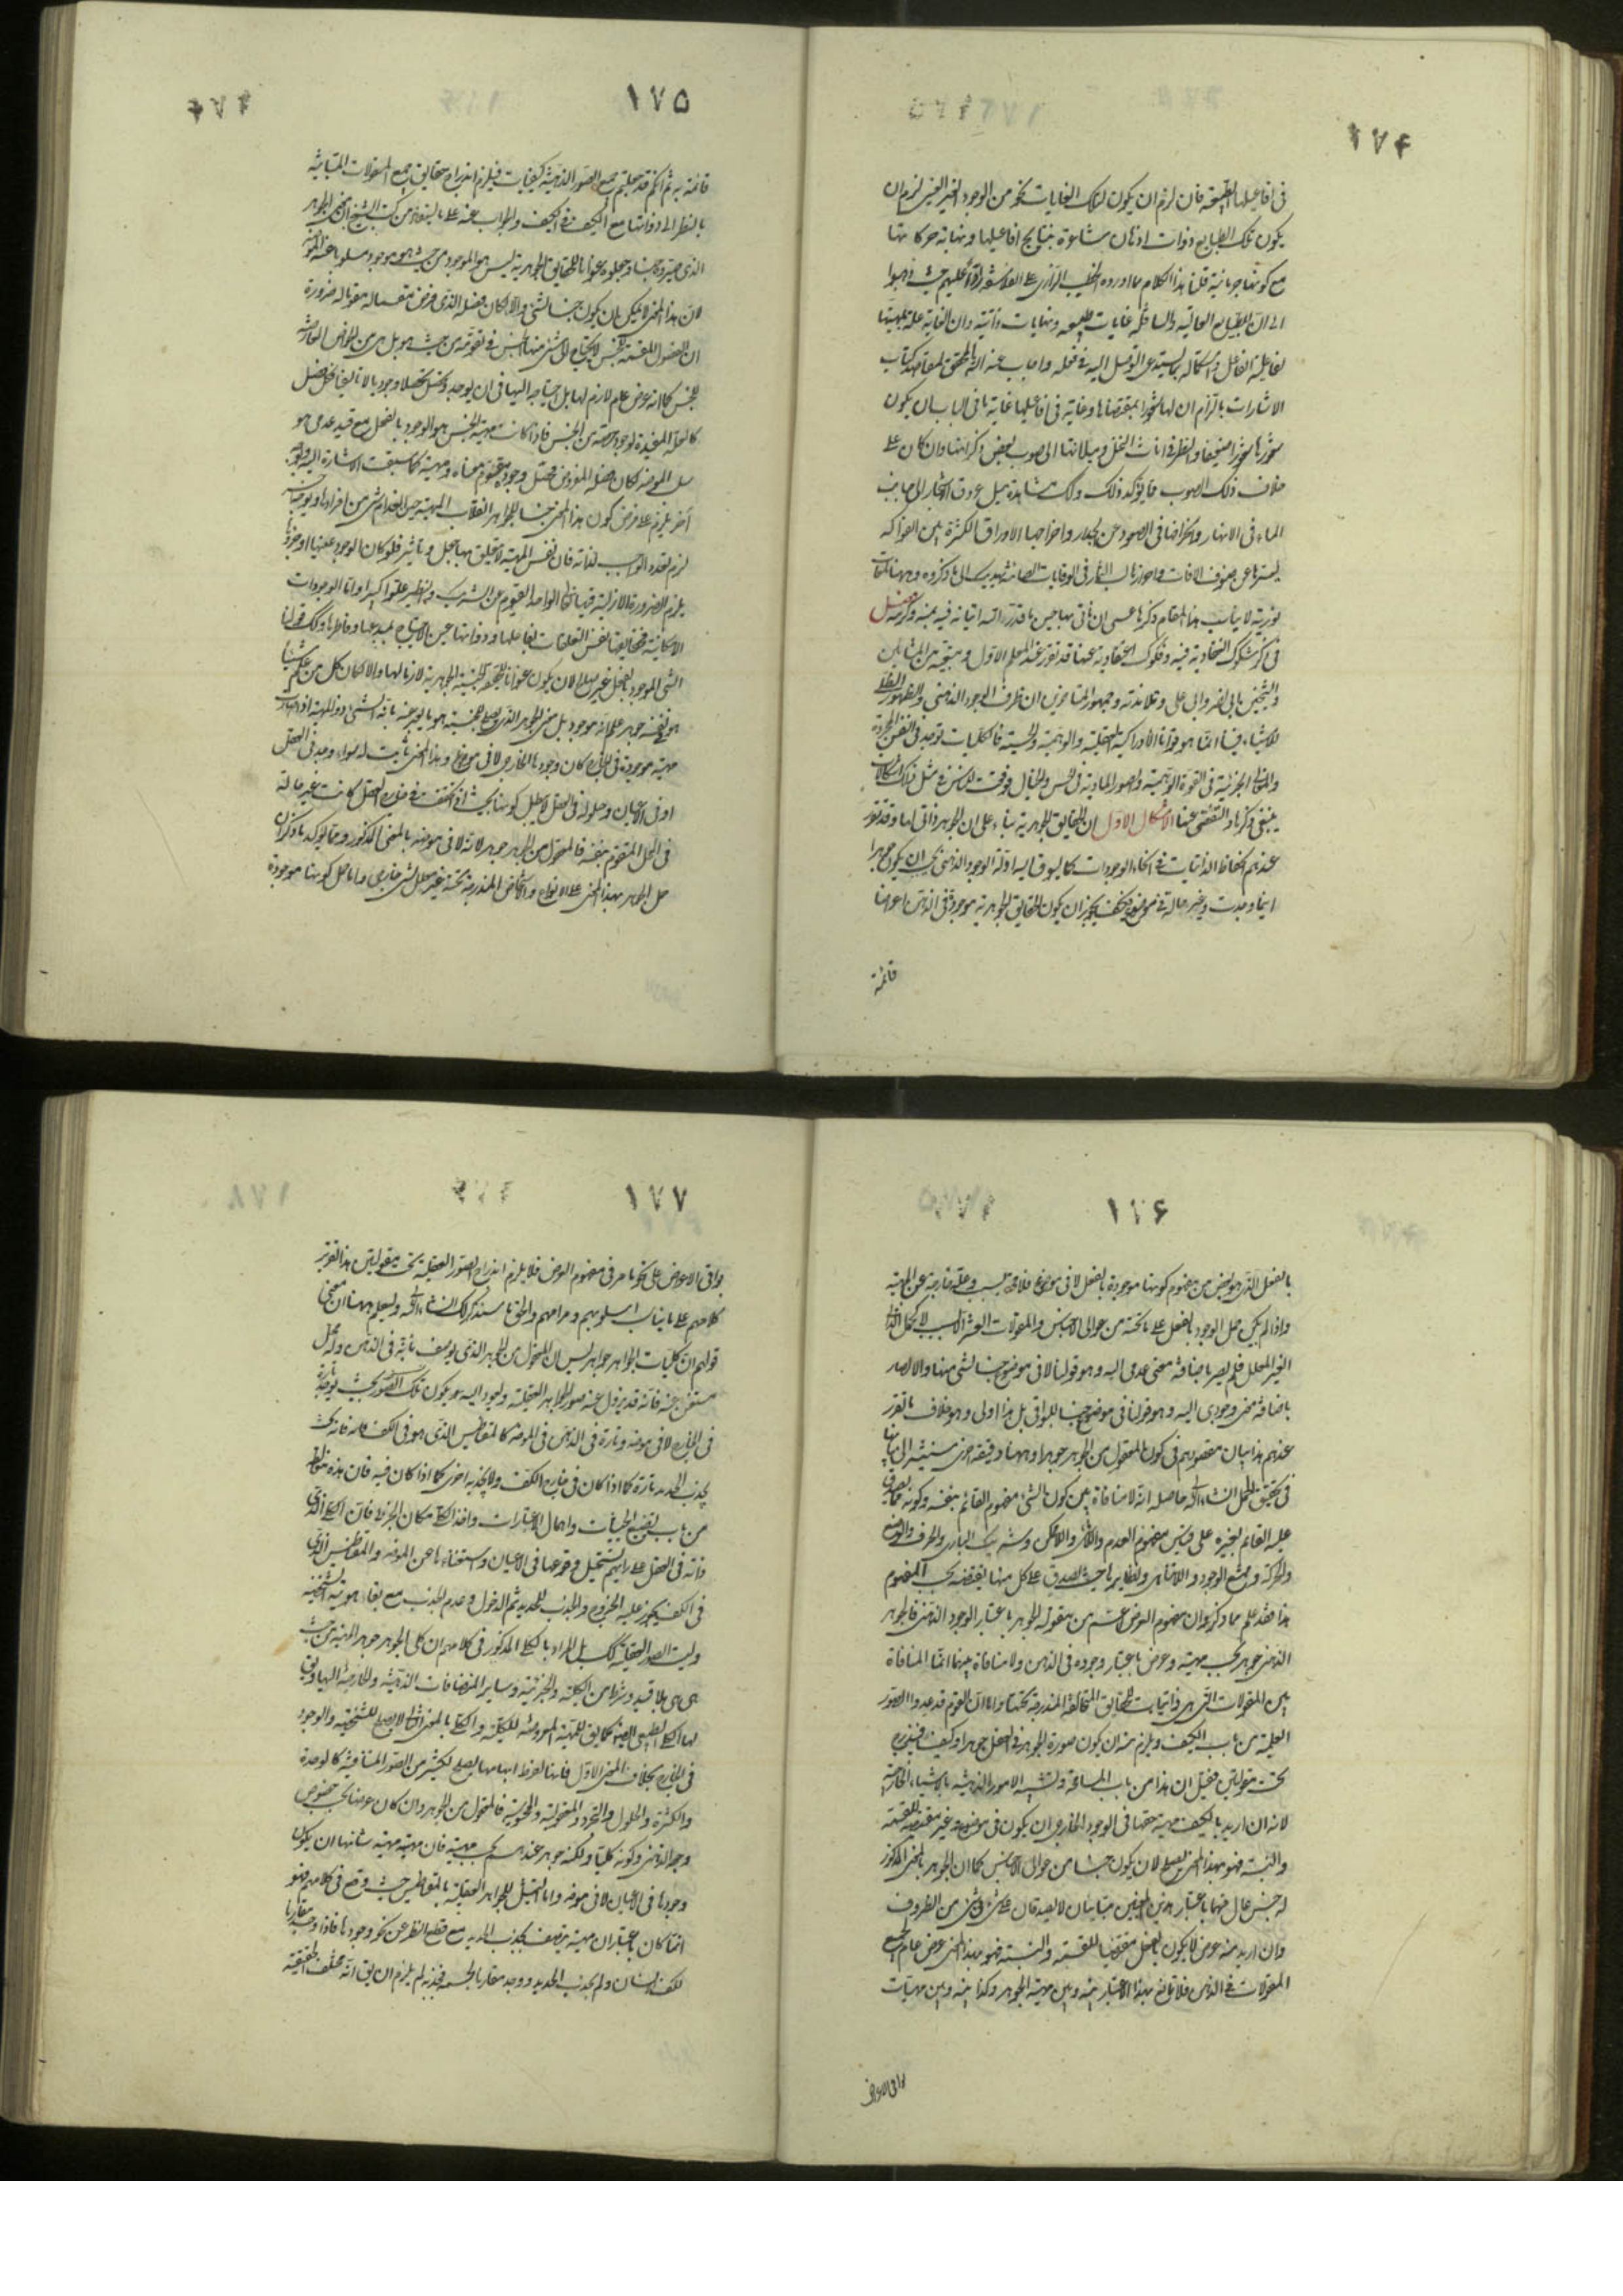 ١٧۴
فى افاعيلها الطبيعية فان لزم ان يكون لتلك الغايات نحو من الوجود الغير العينى لزم ان
يكون تلك الطبايع ذوات اذهان شاعرة بنتايج افاعيلها ونهاية حركاتها
مع كونها جرمانية قلنا هذا الكلام مما اورده الخطيب الرازى على الفلاسفة حيث ذهبوا
الى ان للطبايع العالية والسافلة غايات طبيعية ونهايات ذاتية وان الغاية علة بمهيتها
لفاعلية الفاعل واستكماله بما يستدعى التوصل اليه فى فعله واجاب عنه المحقق لمقاصد كتاب
الاشارات بالتزام ان لها شعورا بمقتضاها وغاية فى افاعيلها غاية ما فى الباب ان يكون
شعورها شعورا ضعيفا والنظر فى اناث النخل وميلانها الى صوب بعض ذكرانها وان كان على
خلاف ذلك الصوب مما يؤكد ذلك وكذلك مشاهدة ميل عروق الاشجار الى جانب
الماء فى الانهار وانحرافها فى الصعود عن الجدار واخراجها الاوراق الكثيرة بين الفواكه
ليسترها عن صنوف الافات واحراز لب الثمار فى الوقايات الصائنة يهديك الى ما ذكروه وههنا
نورية لا يناسب هذا المقام ذكرها عسى ان نأتى بها حين ما قدر الله اتيانه فيه بمنه وكرمه فصل
فى ذكر شكوك انعقادية فيه وفكوك اعتقادية عنها قد تقرر عند المعلم الاول ومتبعيه من المشائين
والشيخين ابى نصر وابى على وتلامذته وجمهور المتاخرين ان ظرف الوجود الذهنى والظهور الظلى
للاشياء فينا انما هو قوانا الادراكية العقلية والوهمية والحسية فالكليات توجد فى النفس المجردة
والمعانى الجزئية فى القوة الوهمية والصور المادية فى الحس والخيال فوقعت للناس فى مثل ذلك اشكالات
ينبغى ذكرها والتفصى عنها الاشكال الاول ان الحقايق الجوهرية بناء على ان الجوهر ذاتى لها وقد تقرر
عندهم انحفاظ الذاتيات فى انحاء الوجودات كما يسوق اليه ادلة الوجود الذهنى يجب ان يكون جوهرا
اينما وجدت وغير حالة فى موضوع فكيف يجوز ان يكون الحقايق الجوهرية موجودة فى الذهن اعراضا
قائمة
١٧۵
قائمة به ثم انكم قد جعلتم جميع الصور الذهنية كيفيات فيلزم اندراج حقايق جميع المقولات المتباينة
بالنظر الى ذواتها مع الكيف فى الكيف والجواب عنه على ما يستفاد من كتب الشيخ ان معنى الجوهر
الذى صيروه جنسا وجعلوه عنوانا للحقايق الجوهرية ليس هو الموجود من حيث هو موجود مسلوبا عنه الموضوع
لان هذا المعنى لا يمكن ان يكون جنسا لشئ والا لكان فصله الذى فرض مقسما له مقوما له ضرورة
ان الفصول المقسمة للجنس لا يحتاج اليها الجنس فى تقومه من حيث هو بل هى من الخواص العارضة
للجنس كما انه عرض عام لازم لها بل احتياجه اليها فى ان يوجد ويحصل تحصلا وجوديا لا تاليفيا فكل فصل
كالعلة المفيدة لوجود حصة من الجنس فاذا كانت مهية الجنس هو الوجود بالفعل مع قيد عدمى هو
سلب الموضوع لكان فصله المفروض محصل وجوده مقوم معناه ومهيته كما سبقت الاشارة اليه وبوجه
آخر يلزم على فرض كون هذا المعنى جنسا للجواهر انقلاب المهية حين انعدام شئ من افرادها وبوجه ثالث
لزم تعدد الواجب لذاته فان نفس المهية لا يتعلق بها جعل وتأثير فلو كان الوجود عينها او جزؤها
يلزم الضرورة الازلية فيها تعالى الواحد القيوم عن الشريك والنظير علوا كبيرا واما الوجودات
الامكانية فحقايقها نفس التعلقات بفاعلها وذواتها عين الاحتياج بمبدعها وفاطرها وكذلك قولنا
الشئ الموجود بالفعل غير صالح لان يكون عنوانا للحقيقة الجنسية الجوهرية لازما لها والا لكان كل من علم شيئا
هو فى نفسه جوهر علم انه موجود بل معنى الجوهر الذى يصلح للجنسية هو ما يعبر عنه بانه الشئ ذو المهية اذا صارت
مهيته موجودة فى الخارج كان وجودها الخارجى لا فى موضوع وهذا المعنى ثابت له سواء وجد فى العقل
او فى الاعيان وحلوله فى العقل لا يبطل كونها بحيث اذا تحققت فى خارج العقل كانت غير حالة
فى المحل المتقوم بنفسه فالمعقول من الجوهر جوهر لانه لا فى موضوع بالمعنى المذكور ومما يؤكد ما ذكر ان
حمل الجوهر بهذا المعنى على الانواع والاشخاص المندرجة تحته غير معلل بشئ خارجى واما حمل كونها موجودة
١٧۶
بالفعل الذى هو بعض من مفهوم كونها موجودة بالفعل لا فى موضوع فلا محالة بسبب وعلة خارجة عن المهية
واذا لم يكن حمل الوجود بالفعل على ما تحته من عوالى الاجناس والمقولات العشر الا بسبب لا كحمل الذاتى
الغير المعلل فلم يصر باضافة معنى عدمى اليه وهو قولنا لا فى موضوع جنسا لشئ منها والا لصار
باضافة معنى وجودى اليه وهو قولنا فى موضوع جنسا للبواقى بل هذا اولى وهو خلاف ما تقرر
عندهم هذا بيان مقصودهم فى كون المعقول من الجوهر جوهرا وههنا دقيقة اخرى سنشير الى بيانها
فى تحقيق الحمل انشاء الله حاصله انه لا منافاة بين كون الشئ مفهوم القائم بنفسه وكونه مما يصدق
عليه القائم بغيره على قياس مفهوم العدم واللاشئ واللاممكن وشريك البارى والحرف والوضع
والحركة وممتنع الوجود واللاتناهى ونظايرها حيث يصدق على كل منها نقيضه بحسب المفهوم
هذا فقد علم مما ذكروا ان مفهوم العرض اعم من مقولة الجوهر باعتبار الوجود الذهنى فالجوهر
الذهنى جوهر بحسب مهيته وعرض باعتبار وجوده فى الذهن ولا منافاة بينهما انما المنافاة
بين المقولات التى هى ذاتيات للحقايق المتخالفة المندرجة تحتها واما ان القوم قد عدوا الصور
العلمية من باب الكيف ويلزم منه ان يكون صورة الجوهر فى العقل جوهرا وكيفا فيندرج
تحت مقولتين فقيل ان هذا من باب المسامحة وتشبيه الامور الذهنية بالاشياء الخارجية
لانه ان اريد بالكيف مهية حقها فى الوجود الخارجى ان يكون فى موضوع غير مقتضية للقسمة
والنسبة فهو بهذا المعنى يصلح لان يكون جنسا من عوالى الاجناس كما ان الجوهر بالمعنى المذكور
له جنس عال فهما باعتبار هذين المعنيين متباينان لا يصدقان على شئ فى شئ من الظروف
وان اريد منه عرض لا يكون بالفعل مقتضيا للقسمة والنسبة فهو بهذا المعنى عرض عام لجميع
المقولات فى الذهن فلا تمانع بهذا الاعتبار بينه وبين مهية الجوهر وكذا بينه وبين مهيات
بواقى الاعراض
١٧٧
بواقى الاعراض على نحو ما مر فى مفهوم العرض فلا يلزم اندراج الصور العقلية تحت مقولتين هذا تقرير
كلامهم على ما يناسب اسلوبهم ومرامهم والحق ما سنذكر لك انشاء الله وليعلم ههنا ان معنى
قولهم ان كليات الجواهر جواهر ليس ان المعقول من الجوهر الذى يوصف بانه فى الذهن وله محل
مستغن عنه فانه قد يزول عنه صور الجواهر العقلية ويعود اليه هو يكون تلك الصور بحيث يوجد تارة
فى الخارج لا فى موضوع وتارة فى الذهن فى الموضوع كالمقناطيس الذى هو فى الكف فانه بحيث
يجذب الحديد تارة كما اذا كان فى خارج الكف ولا يجذبه اخرى كما اذا كان فيه فان هذه مغالطة
من باب تضييع الحيثيات واهمال الاعتبارات واخذ الكلى مكان الجزئى فان الكلى الذى
ذاته فى العقل على رايهم يستحيل وقوعها فى الاعيان واستغناءها عن الموضوع والمقناطيس الذى
فى الكف يجوز عليه الخروج والجذب للحديد ثم الدخول وعدم الجذب مع بقاء هويته الشخصية
وليست الصور العقلية كذلك بل المراد بالكلى المذكور فى كلامهم ان كلى الجوهر جوهر المهية من حيث
هى هى بلا قيد وشرط من الكلية والجزئية وساير المنضافات الذهنية والخارجية اليها ويق
لها الكلى الطبيعى ايضا كما يق للمهية المعروضة للكلية والكلى بالمعنى الثانى لا يصلح للشخصية والوجود
فى الخارج بخلاف المعنى الاول فانها لفرط ابهامها يصلح لكثير من الصور المتنافية كالوحدة
والكثرة والحلول والتجرد والمعقولية والمحسوسية فالمعقول من الجوهر وان كان عرضا بحسب خصوص
وجوده الذهنى وكونه كليا ولكنه جوهر عندهم بحسب مهيته فان مهيته مهية شانها ان يكون
وجودها فى الاعيان لا فى موضوع واما التمثيل للجواهر العقلية بالمقناطيس حيث وقع فى كلامهم فهو
انما كان باعتبار ان مهيته يتصف بجذب الحديد مع قطع النظر عن نحو وجودها فاذا وجد مقارنا
لكف الانسان ولم يجذب الحديد ووجد مقارنا لجسمه فجذبه لم يلزم ان يق انه مختلف الحقيقة